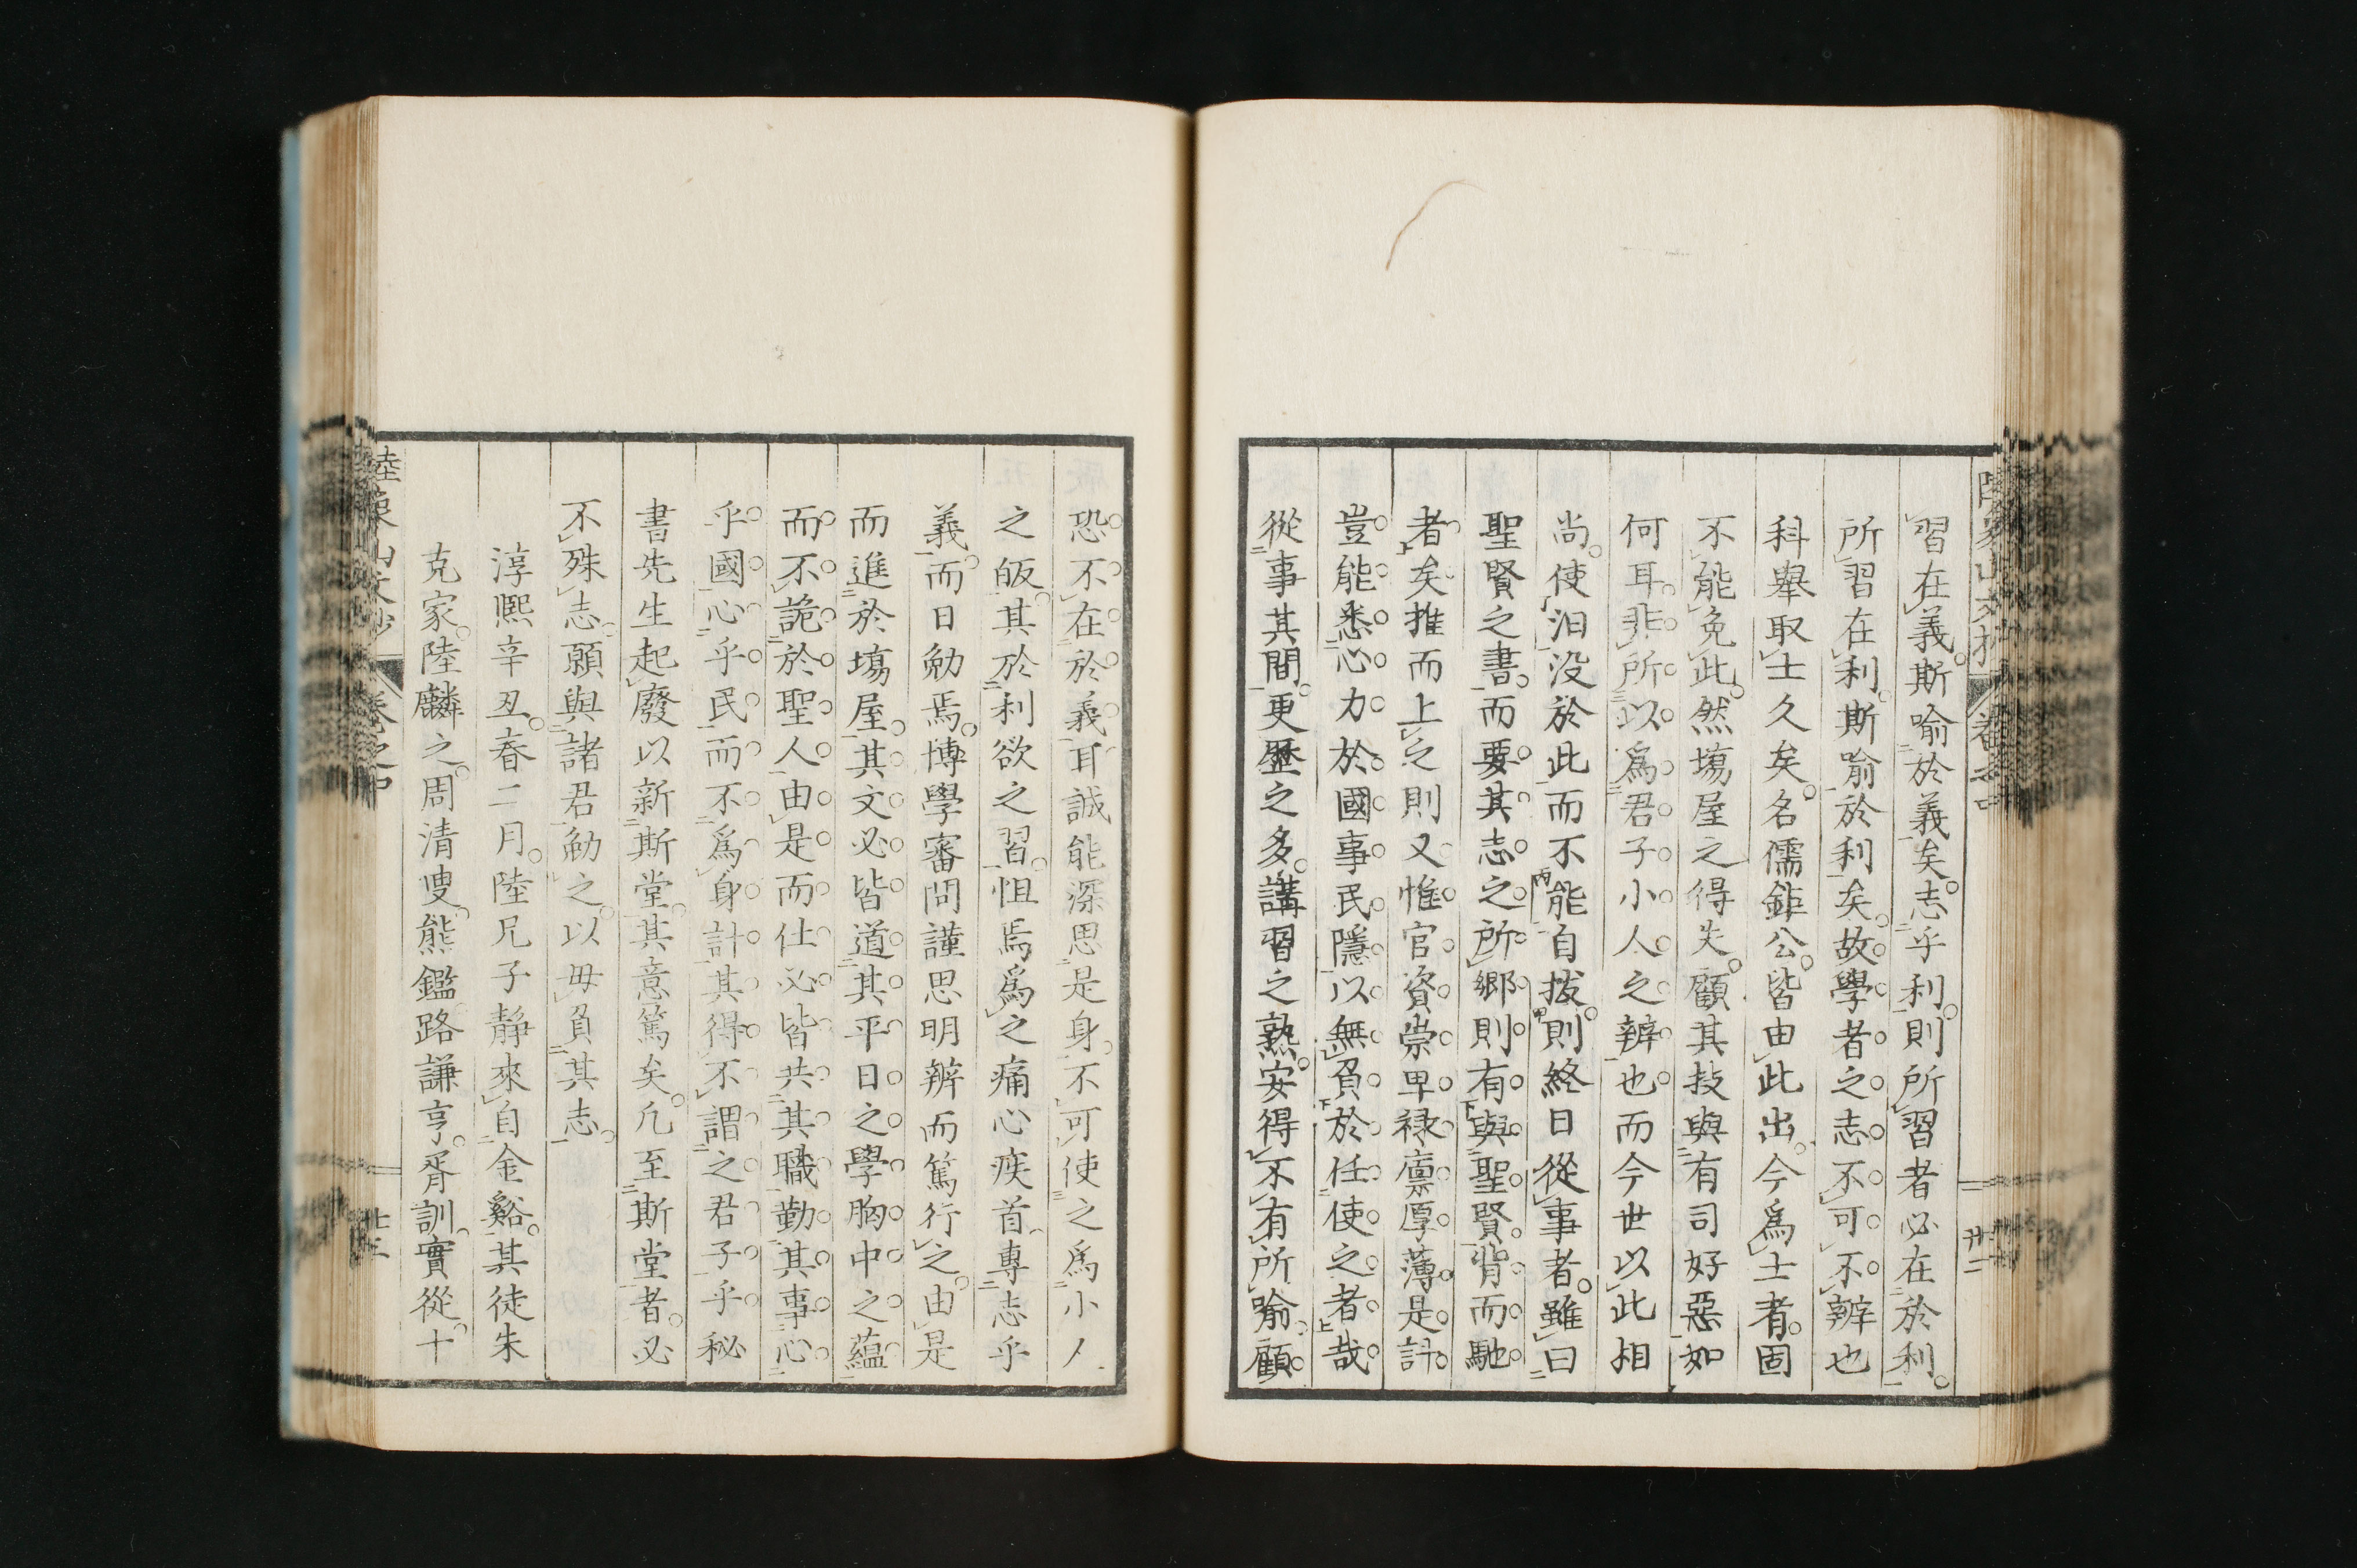 習在義斯喻於義矣志乎利則所習者必在於利
所習在利斯喻於利矣故學者之志不可不辨也
科舉取士久矣名儒鉅公皆由此出今爲士者固
不能免此然塲屋之得失顧其技與有司好惡如
何耳非所以爲君子小人之辨也而今世以此相
尚使汩没於此而不能自拔則終日從事者雖曰
聖賢之書而要其志之所鄉則有與聖賢背而馳
者矣推而上之則又惟官資崇卑禄廩厚薄是計
豈能悉心力於國事民隱以無負於任使之者哉
從事其間更歷之多講習之熟安得不有所喻顧
卷之中
廿二
恐不在於義耳誠能深思是身不可使之爲小人
之皈其於利欲之習怛焉爲之痛心疾首專志乎
義而日勉焉博學審問謹思明辨而篤行之由是
而進於塲屋其文必皆道其平日之學胸中之蘊
而不詭於聖人由是而仕必皆共其職勤其事心
乎國心乎民而不爲身計其得不謂之君子乎秘
書先生起廢以新斯堂其意篤矣凡至斯堂者必
不殊志願與諸君勉之以毋負其志
淳熙辛丑春二月陸兄子靜來自金谿其徒朱
克家陸麟之周清叟熊鑑路謙亨胥訓實從十
陸象山文抄
卷之中
廿三